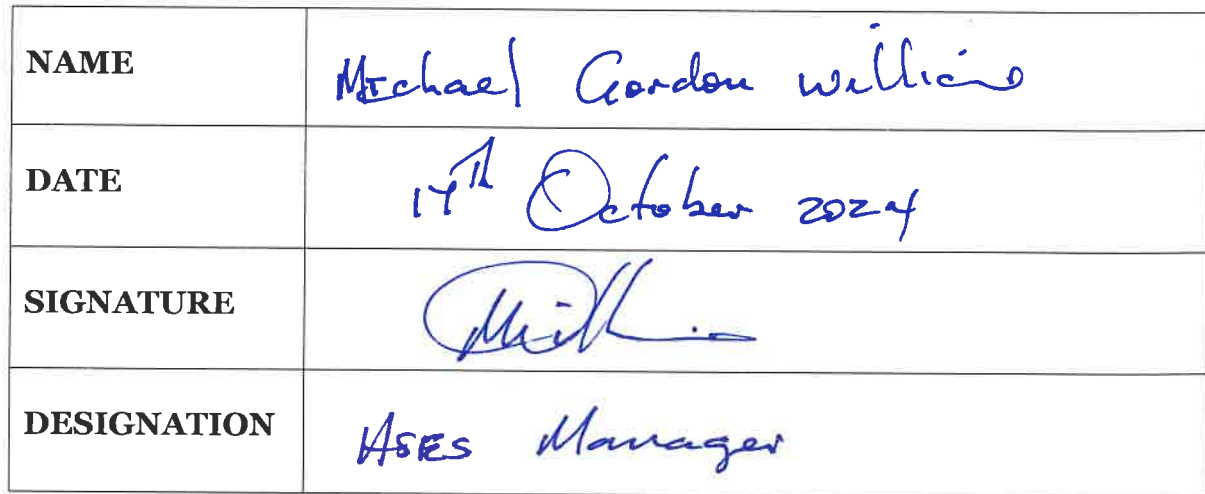 NAME Michael Gordon Williams
DATE 14th October 2024
SIGNATURE
DESIGNATION HSES Manager